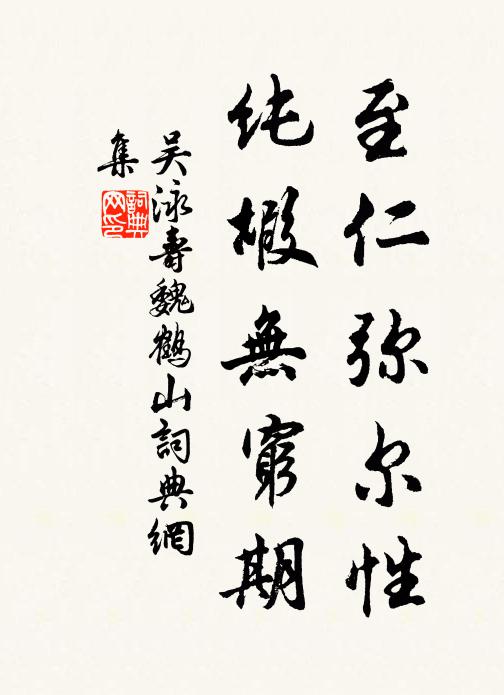 至仁弥尔性
纯嘏無窮期
吴泳壽魏鶴山詞典網
集
詞典網印